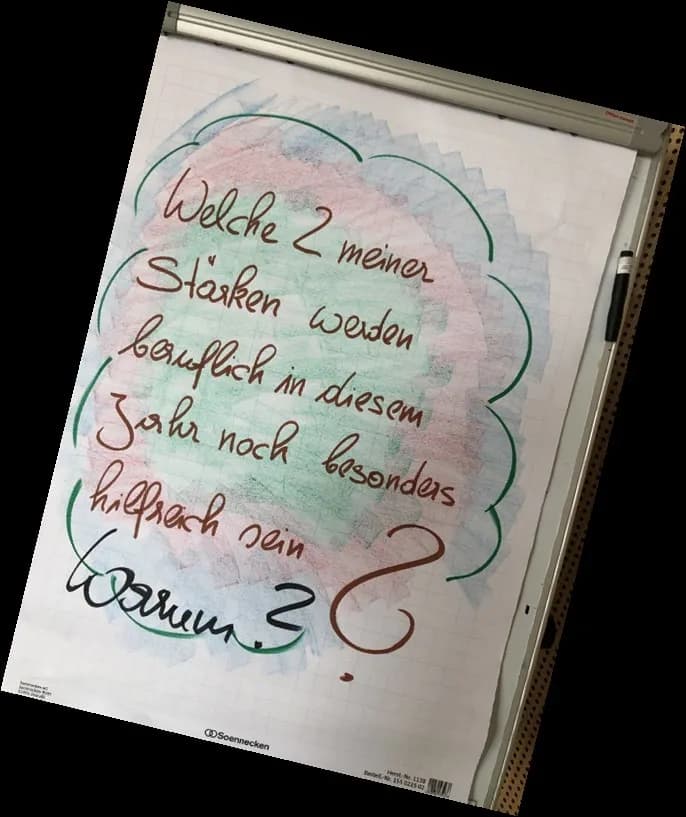 Welche 2 meiner
Stärken werden
beruflich in diesem
Jahr noch besonders
hilfreich sein ?
Warum?
Soennecken
Herst.-Nr. 1138
Bestell.-Nr. 155 0225 02